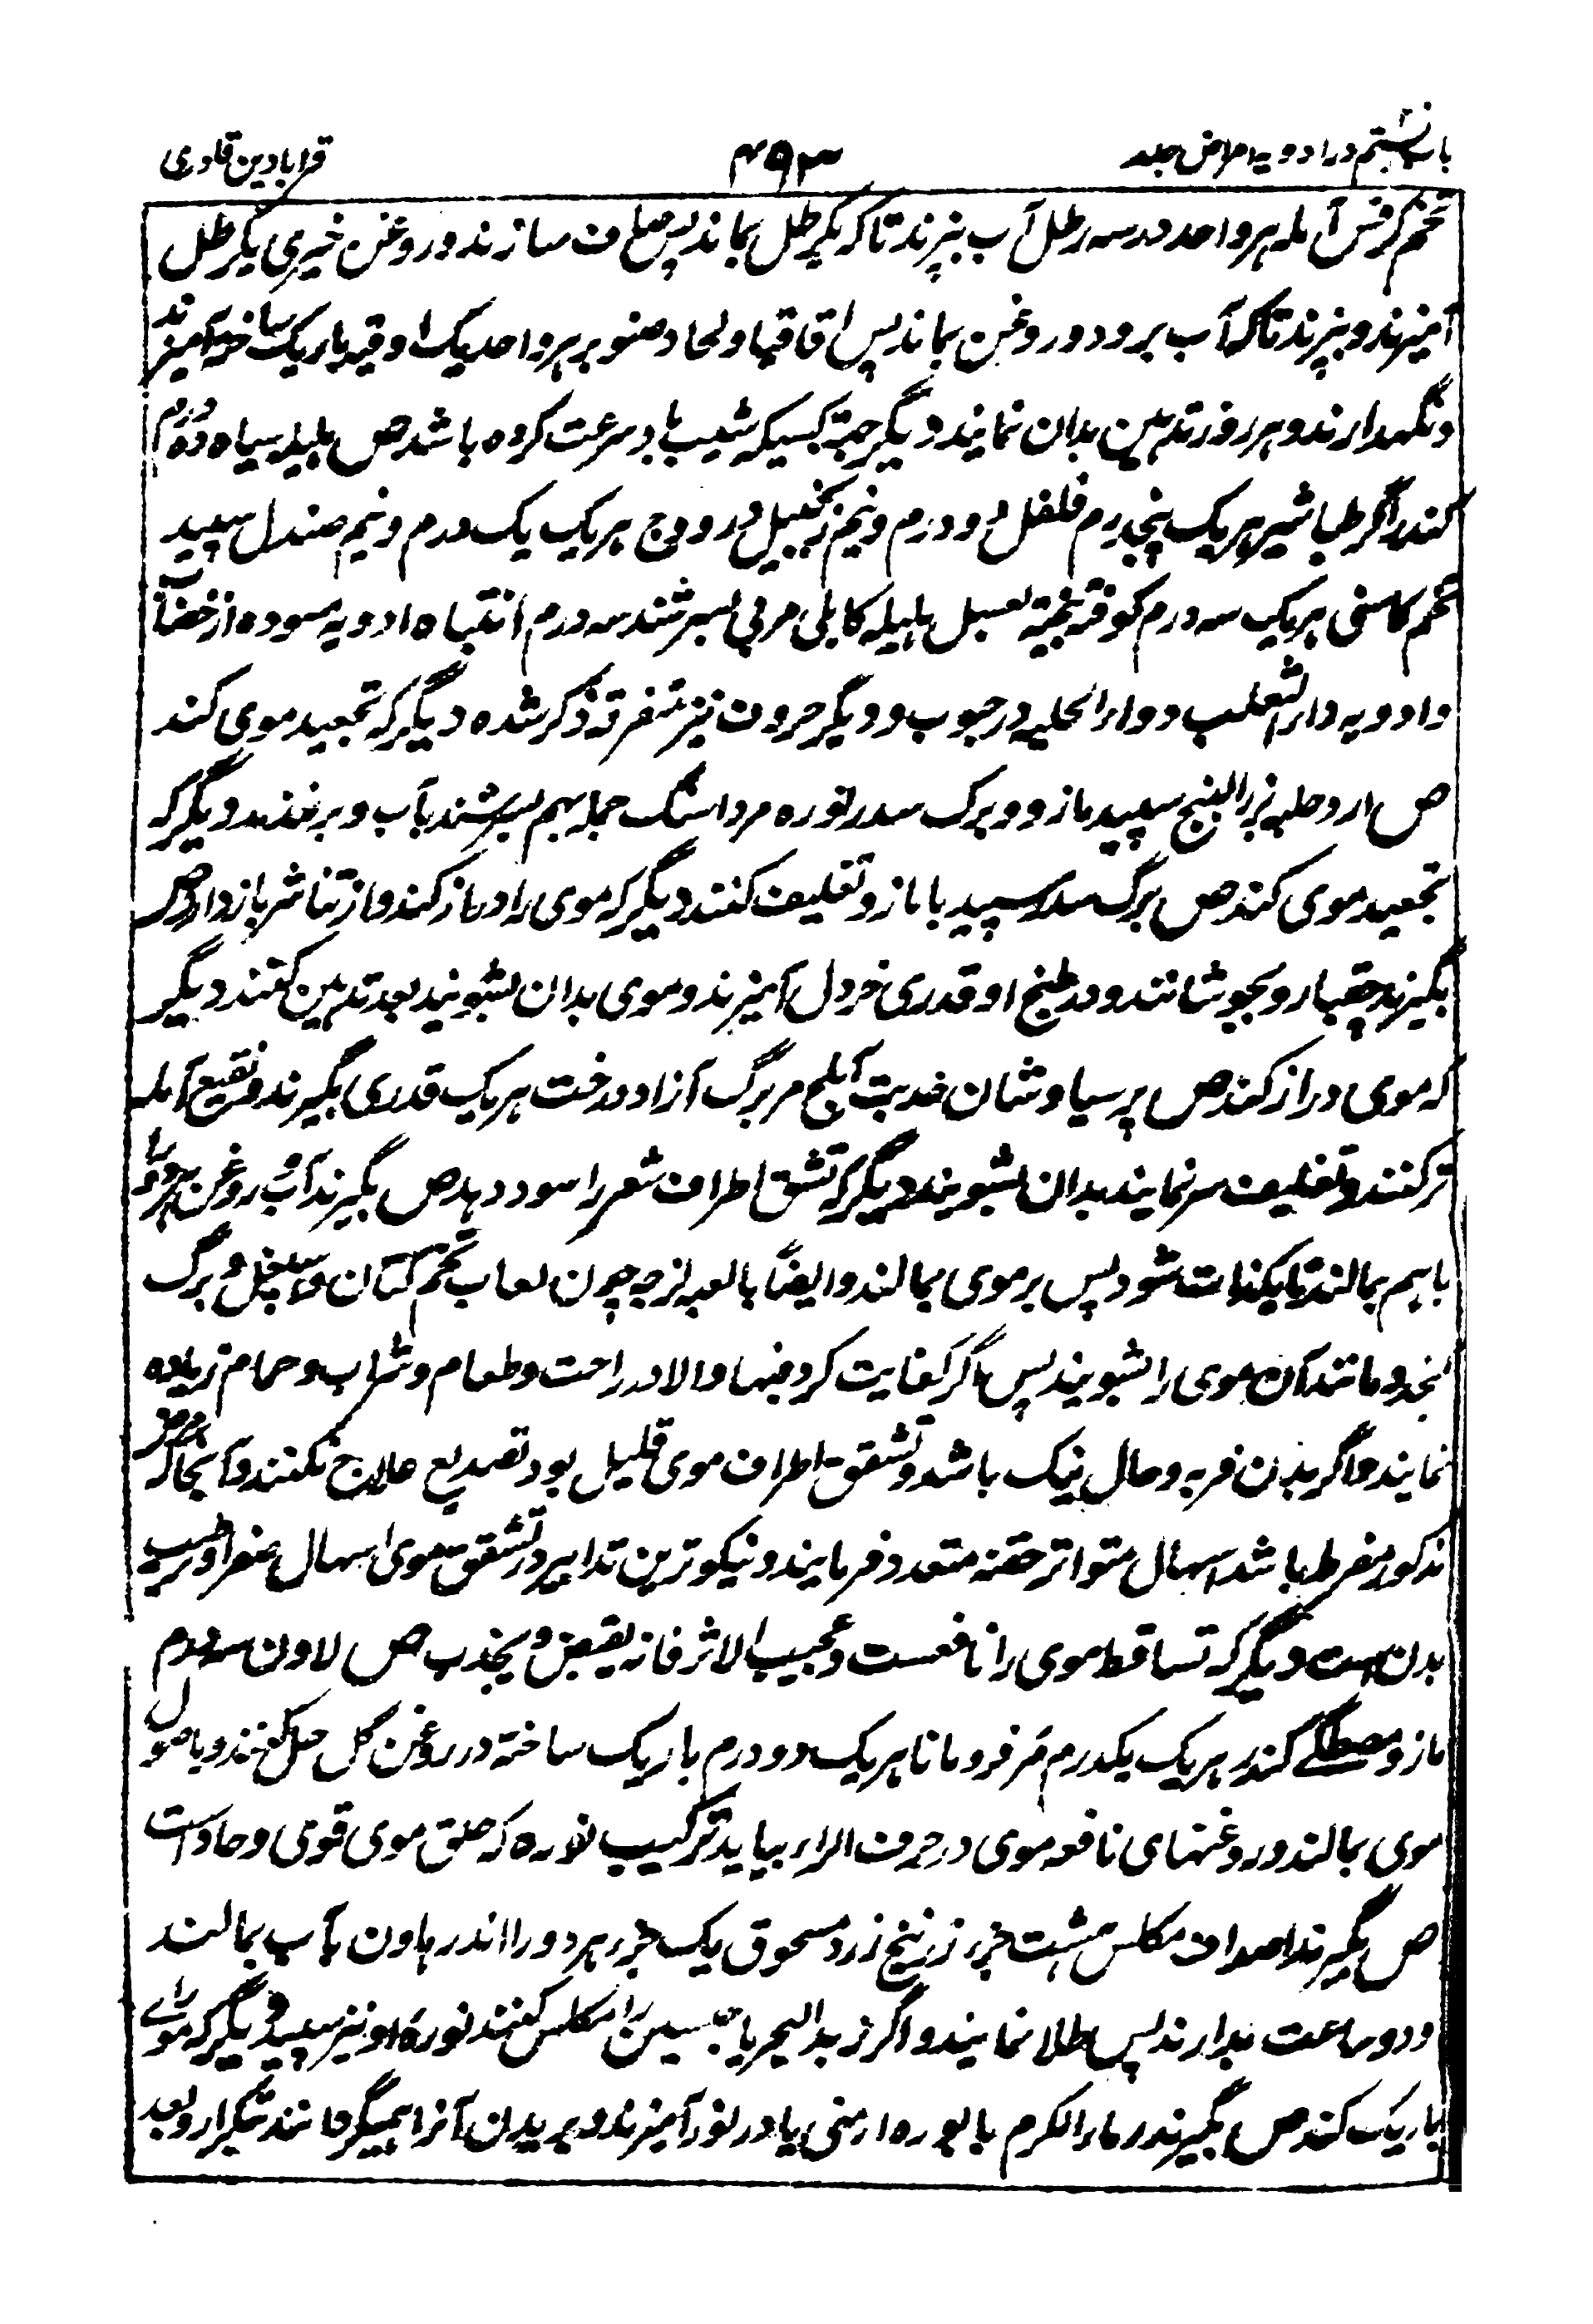 باب بستم در ادویه امراض جلد ۴۹۳ قرابادین قادری
تخم کرفس آمله هر واحد در سه رطل آب بپزند تا که یکرطل بماند پس صاف سازند و روغن خیری یکرطل
آمیزند و بپزند تا که آب برود و روغن بماند پس اقاقیا و لحاء صنوبر هر واحد یک اوقیه باریک ساخته آمیزند
و نگهدارند و هر روز تدهین بدان نمایند دیگر جهة کسیکه شیب باو سرعت کرده باشد ص هلیله سیاه ده درم
کندر اگر طباشیر هریک پنجدرم فلفل دو درم و نیم زنجبیل درونج هریک یک درم و نیم صندل سپید
تخم کاسنی هریک سه درم کوفته بیخته بعسل هلیله کابلی مربی بسرشند سه درم انتباه ادویه مسوده از خضاب
و ادویه داء الثعلب و داء الحیه در حبوب و دیگر حروف نیز متفرقه ذکر شده دیگر که تجعید موی کند
ص آرد حلبه بزر البنج سپید مازو و برگ سدر نوره مرداسنگ جمله بهم بسرشند بآب و بر نهند دیگر که
تجعید موی کند ص برگ سدر سپید با مازو تغلیف کنند دیگر که موی را دراز کند و از تناثر باز دارد ص
بگیرند چقندر و بجوشانند و در طبخ او قدری خردل آمیزند و موی بدان بشویند بعد تدهین کنند دیگر
که موی دراز کند ص پرسیاوشان املج مر برگ آزاد درخت هریک قدری بگیرند و نقیع آمله
تر کنند و تغلیف سر نمایند بدان بشویند دیگر که تشقق اطراف شعر را سود دهد ص بگیرند آب و روغن هر دو را
باهم بمالند تا یکذات شود پس بر موی بمالند و ایضاً بالعبه لزجه چون لعاب تخم کتان و برگ
کنجد و مانند آن موی را بشویند پس اگر کفایت کرد فبها والا در راحت و طعام و شراب و حمام زیاده
نمایند و اگر بدن فربه و حال نیک باشد و تشقق اطراف موی قلیل بود تصدیع علاج نکنند و آنجا که مرض
مذکور مفرط باشد اسهال متواتر حقنه متعدد فرمایند و نیکوترین تدابیر در تشقق موی اسهال صفرا و ترطیب
بدن است دیگر که تساقط موی را نافعست و عجیب الاثر فانه یقبض و یجذب ص لادن سه درم
مازو مصطکی کندر هریک یکدرم مر فردمانا هریک دو درم باریک ساخته در روغن گل حل کنند و باصول
موی بمالند و روغنهای نافعه موی در حرف الراء بیاید ترکیب نوره که حلق موی قوی و حاد است
ص بگیرند اصداف مکلس هشت جزء زرنیخ زرد مسحوق یک جزء هر دو را اندر هاون بآب بمالند
و دو ساعت بدارند پس طلا نمایند و اگر زبد البحر یا جبسین را مکلس کنند نوره او نیز سپید و دیگر که موی را
باریک کند ص بگیرند رماد الکرم با بوره ارمنی یا در نوره آمیزند و بر بدن آنرا همیگردانند بتکرار و بعد